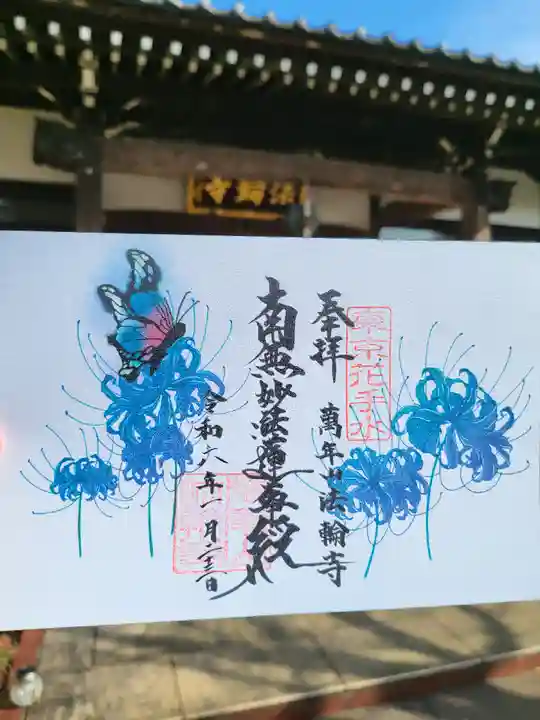 法輪寺
東京花手水
奉拝
萬年山法輪寺
南無妙法蓮華経
令和六年一月二十三日